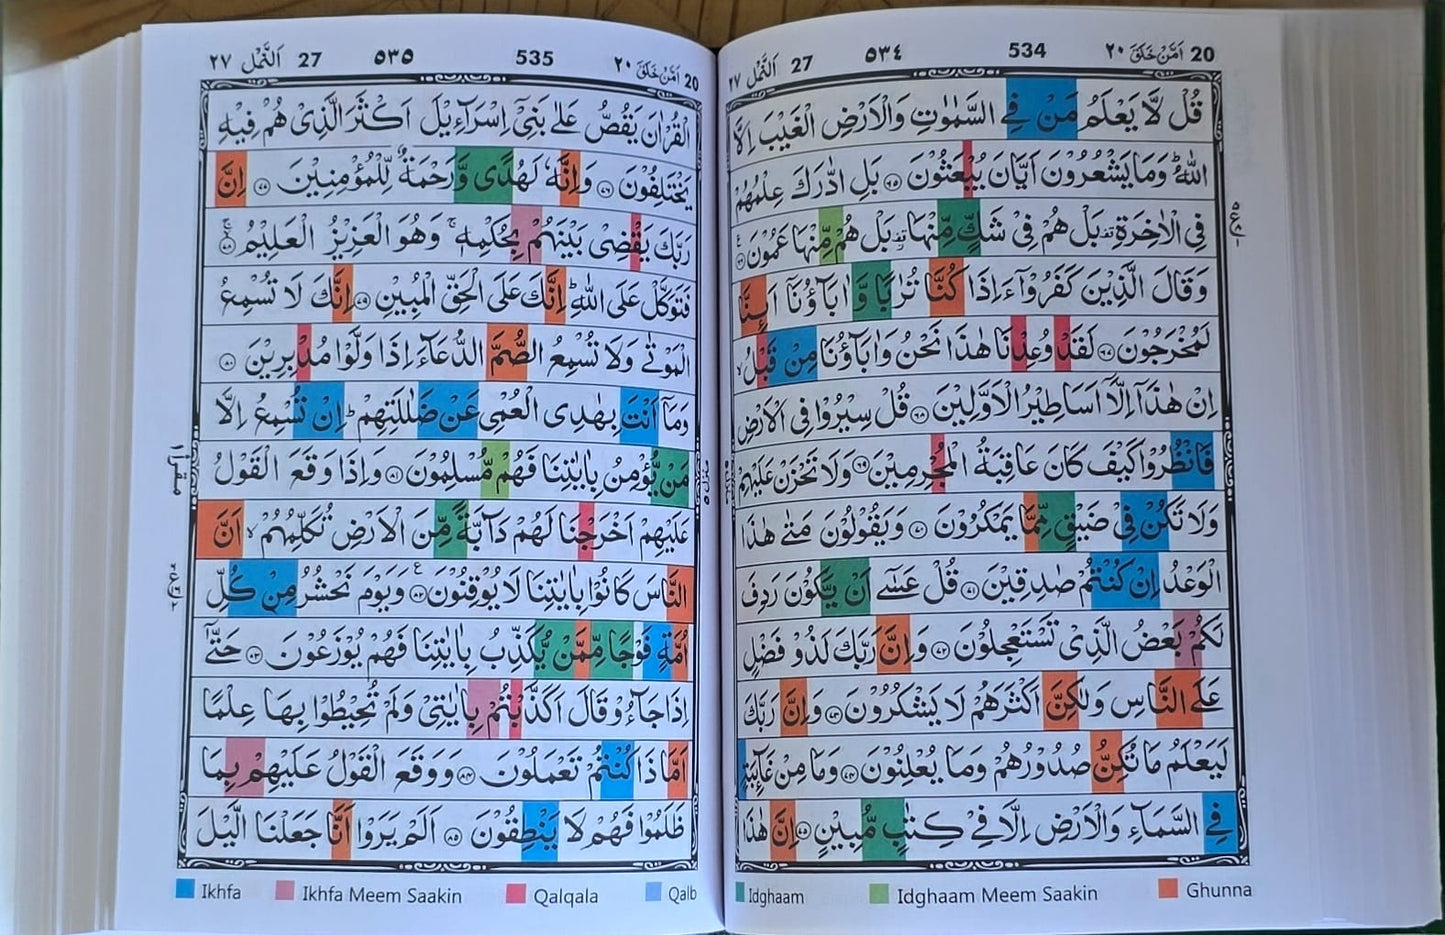 20 اَمَّنْ خَلَقَ ٢٠ 534 ٥٣٤ 27 اَلنَّمْل ٢٧
قُلْ لَّا يَعْلَمُ مَنْ فِي السَّمٰوٰتِ وَالْاَرْضِ الْغَيْبَ اِلَّا
اللّٰهُ ؕ وَمَا يَشْعُرُوْنَ اَيَّانَ يُبْعَثُوْنَ ﴿٦٥﴾ بَلِ ادّٰرَكَ عِلْمُهُمْ
فِي الْاٰخِرَةِ ۫ بَلْ هُمْ فِيْ شَكٍّ مِّنْهَا ۫ بَلْ هُمْ مِّنْهَا عَمُوْنَ ﴿٦٦﴾
وَقَالَ الَّذِيْنَ كَفَرُوْۤا ءَاِذَا كُنَّا تُرٰبًا وَّاٰبَآؤُنَاۤ اَئِنَّا
لَمُخْرَجُوْنَ ﴿٦٧﴾ لَقَدْ وُعِدْنَا هٰذَا نَحْنُ وَاٰبَآؤُنَا مِنْ قَبْلُ ۙ
اِنْ هٰذَاۤ اِلَّاۤ اَسَاطِيْرُ الْاَوَّلِيْنَ ﴿٦٨﴾ قُلْ سِيْرُوْا فِي الْاَرْضِ
فَانْظُرُوْا كَيْفَ كَانَ عَاقِبَةُ الْمُجْرِمِيْنَ ﴿٦٩﴾ وَلَا تَحْزَنْ عَلَيْهِمْ
وَلَا تَكُنْ فِيْ ضَيْقٍ مِّمَّا يَمْكُرُوْنَ ﴿٧٠﴾ وَيَقُوْلُوْنَ مَتٰى هٰذَا
الْوَعْدُ اِنْ كُنْتُمْ صٰدِقِيْنَ ﴿٧١﴾ قُلْ عَسٰۤى اَنْ يَّكُوْنَ رَدِفَ
لَكُمْ بَعْضُ الَّذِيْ تَسْتَعْجِلُوْنَ ﴿٧٢﴾ وَاِنَّ رَبَّكَ لَذُوْ فَضْلٍ
عَلَى النَّاسِ وَلٰكِنَّ اَكْثَرَهُمْ لَا يَشْكُرُوْنَ ﴿٧٣﴾ وَاِنَّ رَبَّكَ
لَيَعْلَمُ مَا تُكِنُّ صُدُوْرُهُمْ وَمَا يُعْلِنُوْنَ ﴿٧٤﴾ وَمَا مِنْ غَآئِبَةٍ
فِي السَّمَآءِ وَالْاَرْضِ اِلَّا فِيْ كِتٰبٍ مُّبِيْنٍ ﴿٧٥﴾ اِنَّ هٰذَا
Idghaam Idghaam Meem Saakin Ghunna
20 اَمَّنْ خَلَقَ ٢٠ 535 ٥٣٥ 27 اَلنَّمْل ٢٧
الْقُرْاٰنَ يَقُصُّ عَلٰى بَنِيْۤ اِسْرَآءِيْلَ اَكْثَرَ الَّذِيْ هُمْ فِيْهِ
يَخْتَلِفُوْنَ ﴿٧٦﴾ وَاِنَّهٗ لَهُدًى وَّرَحْمَةٌ لِّلْمُؤْمِنِيْنَ ﴿٧٧﴾ اِنَّ
رَبَّكَ يَقْضِيْ بَيْنَهُمْ بِحُكْمِهٖ ۚ وَهُوَ الْعَزِيْزُ الْعَلِيْمُ ﴿٧٨﴾
فَتَوَكَّلْ عَلَى اللّٰهِ ؕ اِنَّكَ عَلَى الْحَقِّ الْمُبِيْنِ ﴿٧٩﴾ اِنَّكَ لَا تُسْمِعُ
الْمَوْتٰى وَلَا تُسْمِعُ الصُّمَّ الدُّعَآءَ اِذَا وَلَّوْا مُدْبِرِيْنَ ﴿٨٠﴾
وَمَاۤ اَنْتَ بِهٰدِي الْعُمْيِ عَنْ ضَلٰلَتِهِمْ ؕ اِنْ تُسْمِعُ اِلَّا
مَنْ يُّؤْمِنُ بِاٰيٰتِنَا فَهُمْ مُّسْلِمُوْنَ ﴿٨١﴾ وَاِذَا وَقَعَ الْقَوْلُ
عَلَيْهِمْ اَخْرَجْنَا لَهُمْ دَآبَّةً مِّنَ الْاَرْضِ تُكَلِّمُهُمْ ۙ اَنَّ
النَّاسَ كَانُوْا بِاٰيٰتِنَا لَا يُوْقِنُوْنَ ﴿٨٢﴾ وَيَوْمَ نَحْشُرُ مِنْ كُلِّ
اُمَّةٍ فَوْجًا مِّمَّنْ يُّكَذِّبُ بِاٰيٰتِنَا فَهُمْ يُوْزَعُوْنَ ﴿٨٣﴾ حَتّٰۤى
اِذَا جَآءُوْ قَالَ اَكَذَّبْتُمْ بِاٰيٰتِيْ وَلَمْ تُحِيْطُوْا بِهَا عِلْمًا
اَمَّا ذَا كُنْتُمْ تَعْمَلُوْنَ ﴿٨٤﴾ وَوَقَعَ الْقَوْلُ عَلَيْهِمْ بِمَا
ظَلَمُوْا فَهُمْ لَا يَنْطِقُوْنَ ﴿٨٥﴾ اَلَمْ يَرَوْا اَنَّا جَعَلْنَا الَّيْلَ
Ikhfa Ikhfa Meem Saakin Qalqala Qalb